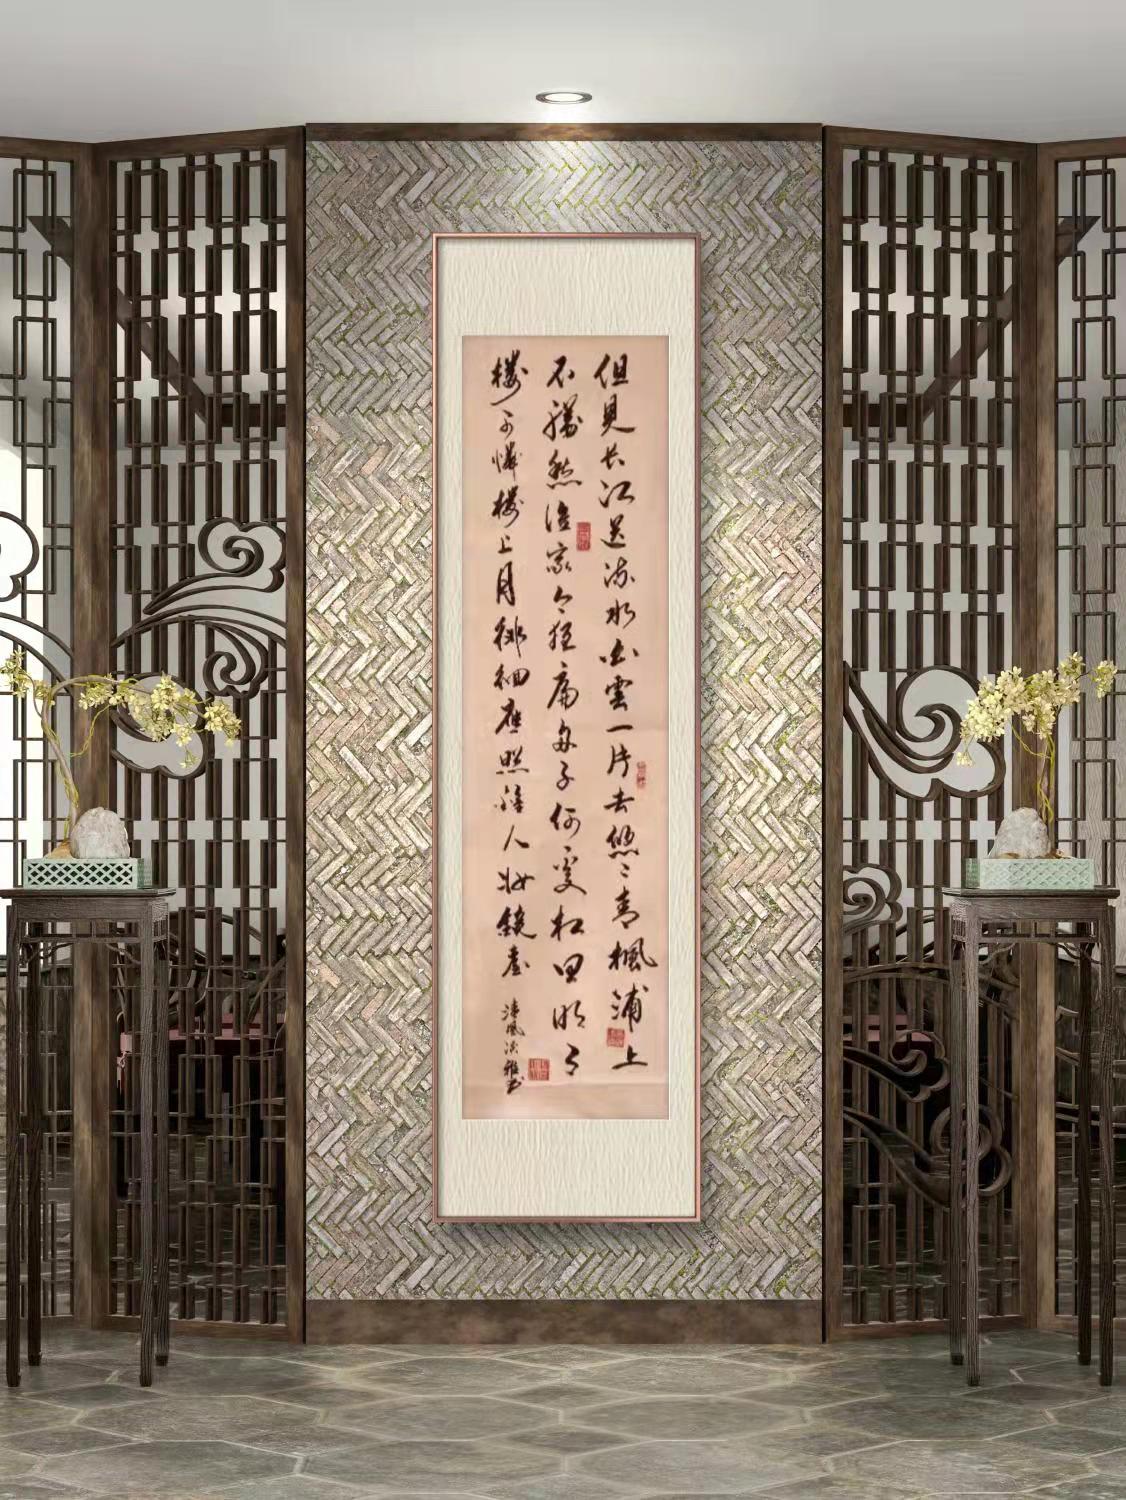 但見长江送流水白雲一片去悠〻青楓浦上
不勝愁谁家今夜扁舟子何处相思明月
樓可憐樓上月徘徊应照離人妝鏡臺
清風淡雅书